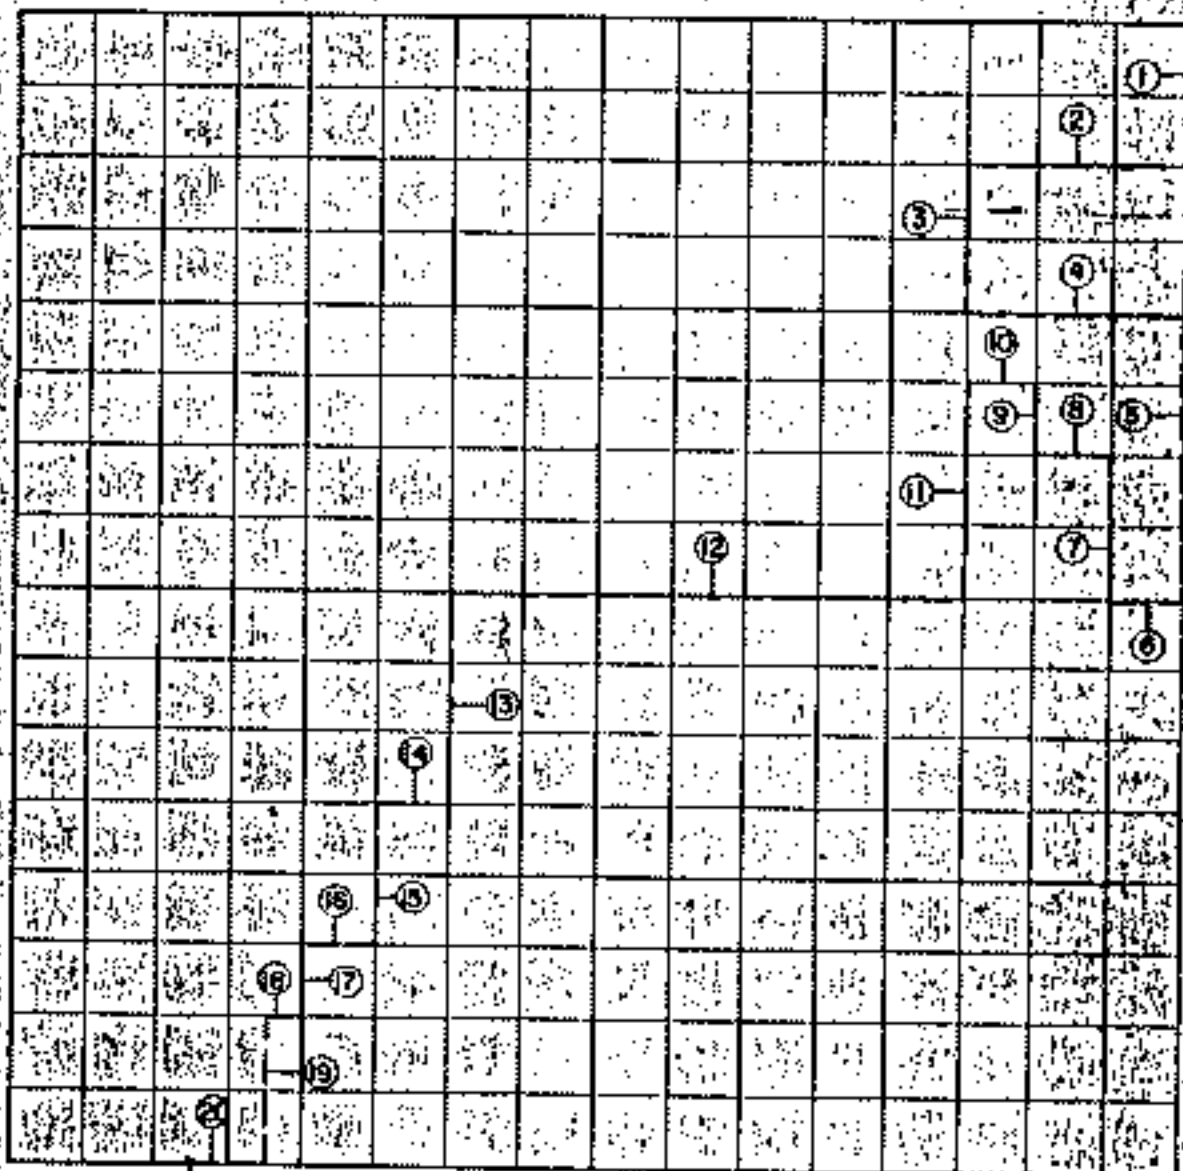 1
2
3
4
10
9 8 5
11
12 7
6
13
14
16 15
18 17
19
20